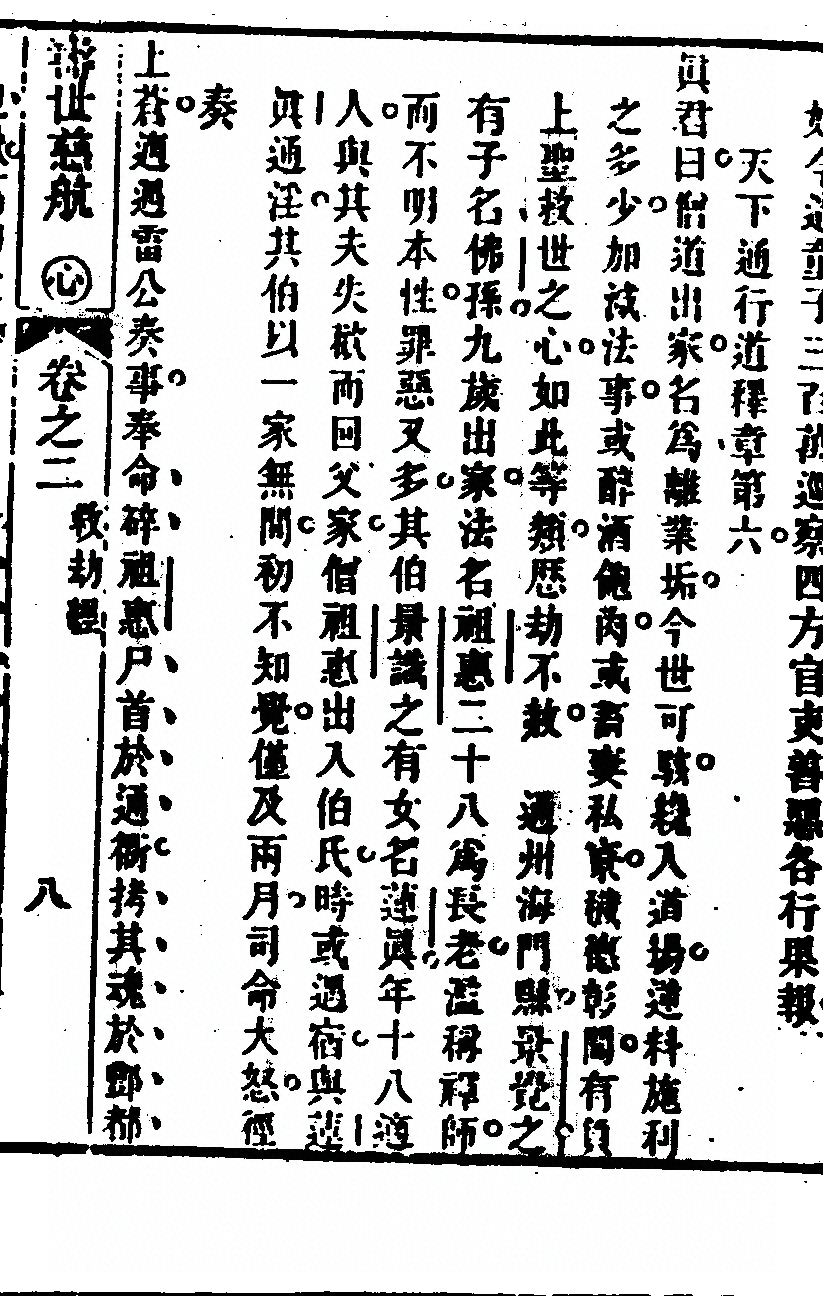 遣童子三百萬巡察四方官吏善惡各行果報
天下通行道釋章第六
眞君曰僧道出家名爲離業垢今世可駭纔入道場運料施利
之多少加減法事或醉酒飽肉或畜妻私寮穢德彰聞有負
上聖救世之心如此等類歷劫不赦　通州海門縣景覺之
有子名佛孫九歲出家法名祖惠二十八爲長老濫稱禪師
而不明本性罪惡又多其伯景識之有女名蓮眞年十八適
人與其夫失歡而回父家僧祖惠出入伯氏時或過宿與蓮
眞通淫其伯以一家無間初不知覺僅及兩月司命大怒徑
奏
上蒼適遇雷公奏事奉命碎祖惠尸首於通衢拷其魂於酆都
世慈航 心 卷之二 救劫經 八